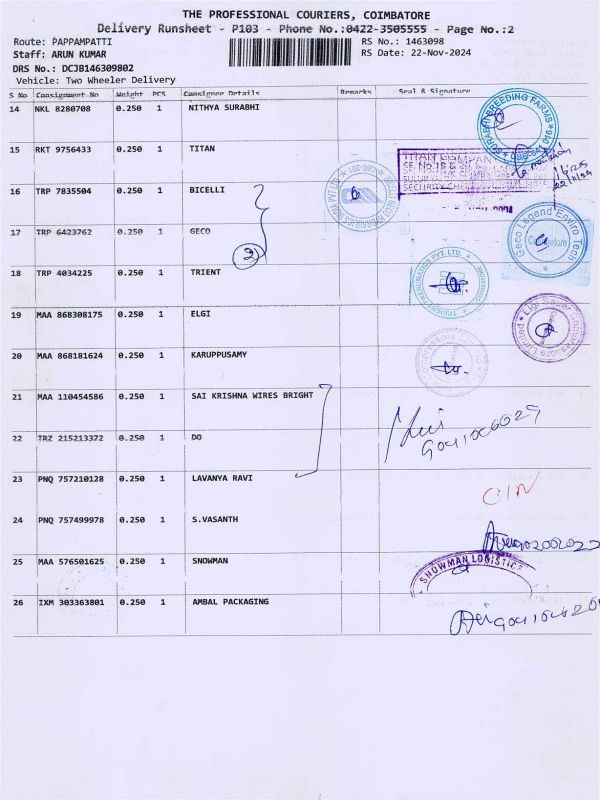 THE PROFESSIONAL COURIERS, COIMBATORE
Delivery Runsheet - P103 - Phone No.:0422-3505555 - Page No.:2
Route: PAPPAMPATTI RS No.: 1463098
Staff: ARUN KUMAR RS Date: 22-Nov-2024
DRS No.: DCJB146309802
Vehicle: Two Wheeler Delivery
S No Consignment No Weight PCS Consignee Details Remarks Seal & Signature
14 NKL 8280708 0.250 1 NITHYA SURABHI
15 RKT 9756433 0.250 1 TITAN
16 TRP 7835504 0.250 1 BICELLI
17 TRP 6423762 0.250 1 GECO
2
18 TRP 4034225 0.250 1 TRIENT
19 MAA 868308175 0.250 1 ELGI
20 MAA 868181624 0.250 1 KARUPPUSAMY
21 MAA 110454586 0.250 1 SAI KRISHNA WIRES BRIGHT
22 TRZ 215213372 0.250 1 DO
23 PNQ 757210128 0.250 1 LAVANYA RAVI
24 PNQ 757499978 0.250 1 S.VASANTH
25 MAA 576501625 0.250 1 SNOWMAN
SNOWMAN LOGISTICS
26 IXM 303363801 0.250 1 AMBAL PACKAGING
Geco Legend Enviro Tech